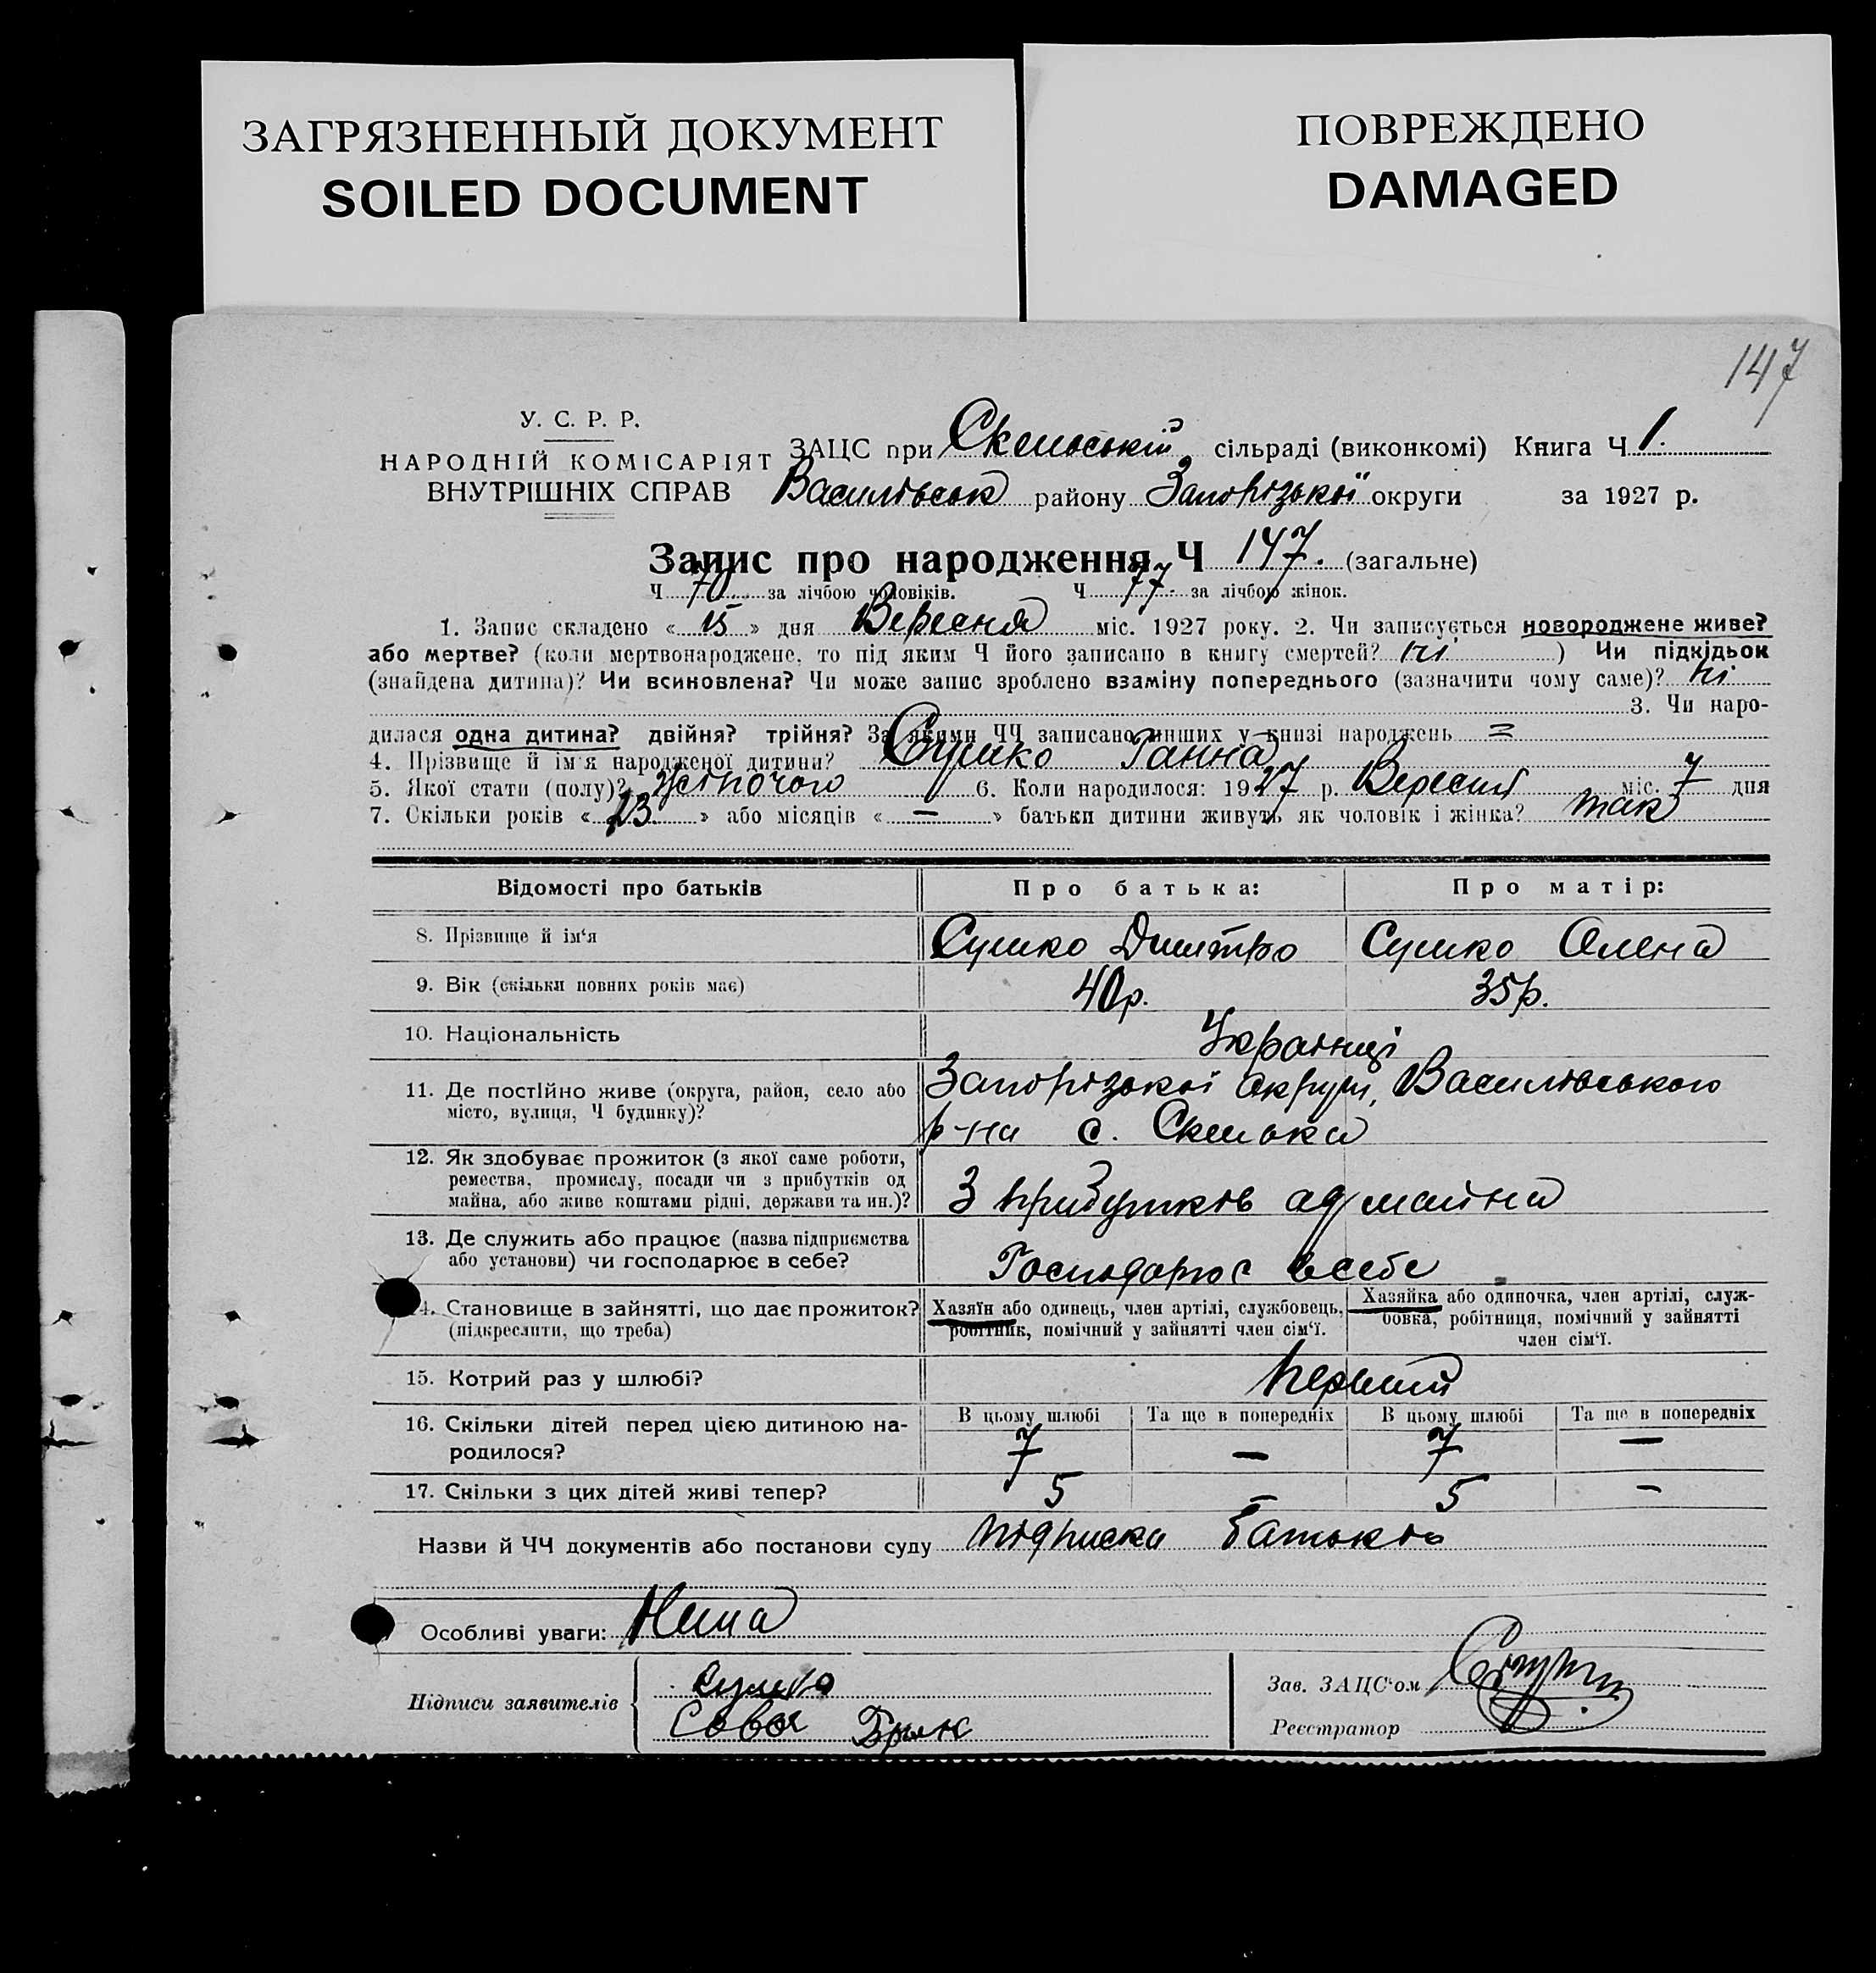 ЗАГРЯЗНЕННЫЙ ДОКУМЕНТ
SOILED DOCUMENT
ПОВРЕЖДЕНО
DAMAGED
147
У. С. Р. Р.
НАРОДНІЙ КОМІСАРІЯТ
ВНУТРІШНІХ СПРАВ
ЗАЦС при Скельській сільраді (виконкомі) Книга Ч 1.
Василівськ району Запорізької округи за 1927 р.
Запис про народження Ч 147. (загальне)
Ч 70 за лічбою чоловіків. Ч 77 за лічбою жінок.
1. Запис складено « 15 » дня Вересня міс. 1927 року. 2. Чи записується новороджене живе?
або мертве? (коли мертвонароджене, то під яким Ч його записано в книгу смертей? ні ) Чи підкідьок
(знайдена дитина)? Чи всиновлена? Чи може запис зроблено взаміну попереднього (зазначити чому саме)? ні
3. Чи наро-
дилася одна дитина? двійня? трійня? За якими ЧЧ записано инших у книзі народжень =
4. Прізвище й ім'я народженої дитини? Сушко Ганна
5. Якої стати (полу)? жіночого 6. Коли народилося: 1927 р. Вересня міс. 7 дня
7. Скільки років « 23 » або місяців « — » батьки дитини живуть як чоловік і жінка? так
Відомості про батьків Про батька: Про матір:
8. Прізвище й ім'я Сушко Дмитро Сушко Олена
9. Вік (скільки повних років має) 40р. 35р.
10. Національність Українці
11. Де постійно живе (округа, район, село або Запорізької округи, Василівського
місто, вулиця, Ч будинку)? р-на с. Скелька
12. Як здобуває прожиток (з якої саме роботи,
ремества, промислу, посади чи з прибутків од
майна, або живе коштами рідні, держави та ин.)? З прибутків од майна
13. Де служить або працює (назва підприємства
або установи) чи господарює в себе? Господарює всебе
4. Становище в зайнятті, що дає прожиток? Хазяїн або одинець, член артілі, службовець, Хазяйка або одиночка, член артілі, служ-
(підкреслити, що треба) робітник, помічний у зайнятті член сім'ї. бовка, робітниця, помічний у зайнятті
член сім'ї.
15. Котрий раз у шлюбі? Перший
16. Скільки дітей перед цією дитиною на- В цьому шлюбі Та ще в попередніх В цьому шлюбі Та ще в попередніх
родилося? 7 — 7 —
17. Скільки з цих дітей живі тепер? 5 – 5 –
Назви й ЧЧ документів або постанови суду підписка батьків
Особливі уваги: Нима
Підписи заявителів Сушко
Сава Брик
Зав. ЗАЦС'ом
Реєстратор